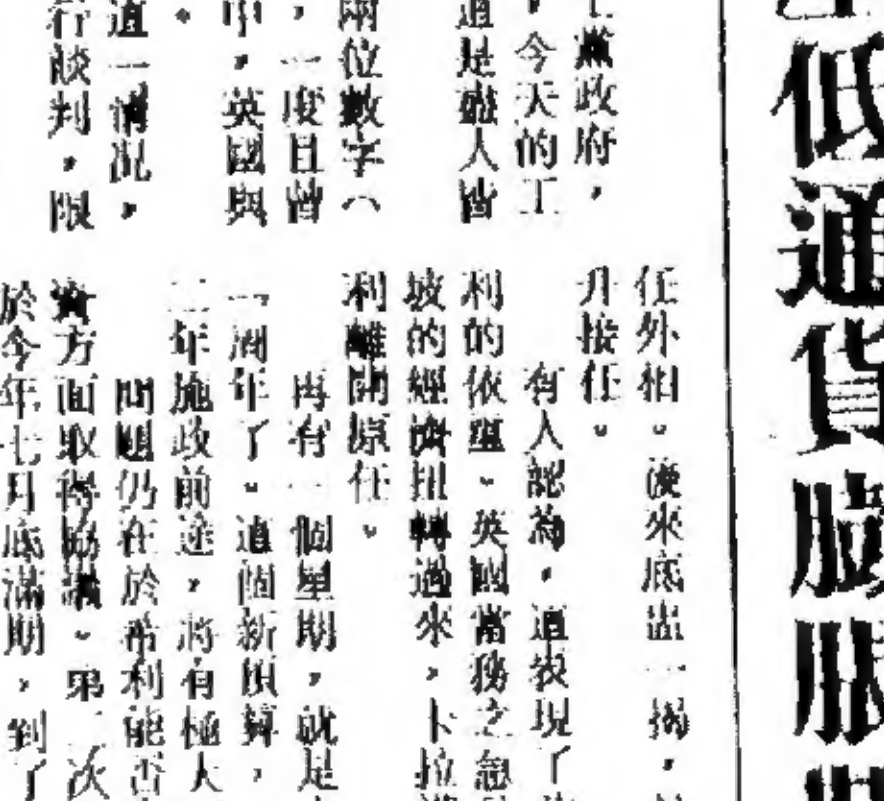 低通貨膨脹
黨政府，
，今天的工
道是盡人皆
兩位數字（
，一度且曾
中，英國與
。
這一情况，
行談判，限
任外相。後來底盅一揭，
升接任。
有人認為，這表現了
利的依重。英國當務之急
坡的經濟扭轉過來，卡拉
利離開原任。
再有一個星期，就是
一周年了。這個新預算，
二年施政前途，將有極大
問題仍在於希利能否
資方面取得協議。第一次
於今年七月底滿期，到了